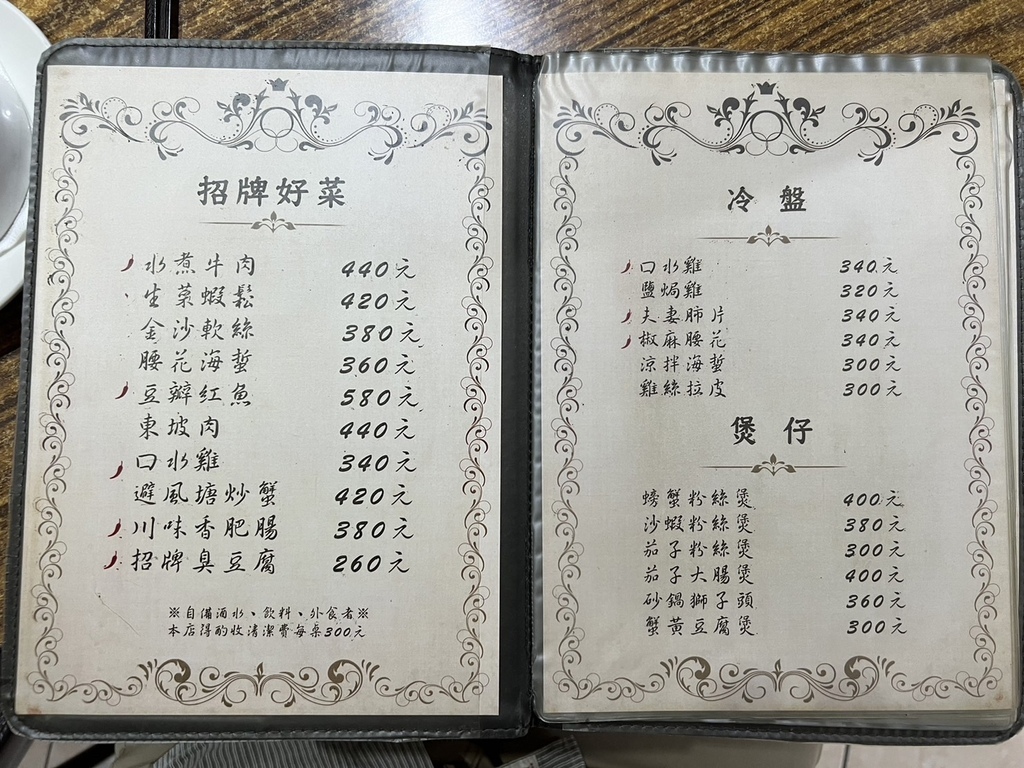 招牌好菜
水煮牛肉 440元
生菜蝦鬆 420元
金沙軟絲 380元
腰花海蜇 360元
豆瓣紅魚 580元
東坡肉 440元
口水雞 340元
避風塘炒蟹 420元
川味香肥腸 380元
招牌臭豆腐 260元
※自備酒水、飲料、外食者※
本店得酌收清潔費每桌300元
冷盤
口水雞 340元
鹽焗雞 320元
夫妻肺片 340元
椒麻腰花 340元
涼拌海蜇 300元
雞絲拉皮 300元
煲仔
螃蟹粉絲煲 400元
沙蝦粉絲煲 380元
茄子粉絲煲 300元
茄子大腸煲 400元
砂鍋獅子頭 360元
蟹黃豆腐煲 300元